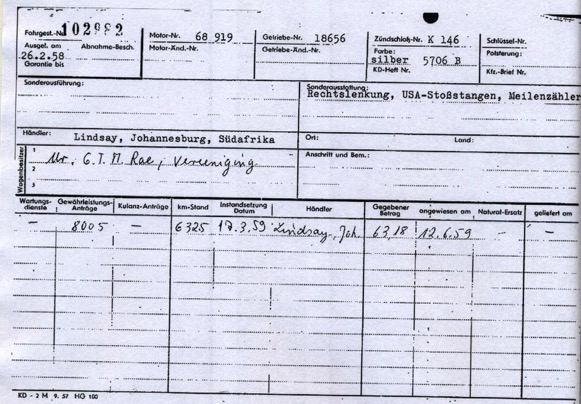 Fahrgest.-Nr. 102982
Motor-Nr. 68 919
Getriebe-Nr. 18656
Zündschloß-Nr. K 146
Schlüssel-Nr.
Ausgel. am Abnahme-Besch.
26.2.58
Garantie bis
Motor-Änd.-Nr.
Getriebe-Änd.-Nr.
Farbe:
silber 5706 B
KD-Heft Nr.
Polsterung:
Kfz.-Brief Nr.
Sonderausführung:
Sonderausstattung:
Rechtslenkung, USA-Stoßstangen, Meilenzähler
Händler: Lindsay, Johannesburg, Südafrika
Ort: Land:
Wagenbesitzer
1 Mr. G.T.M. Rae, Vereeniging
2
3
Anschrift und Bem.:
Wartungs-dienste Gewährleistungs-Anträge Kulanz-Anträge km-Stand Instandsetzung Datum Händler Gegebener Betrag angewiesen am Natural-Ersatz geliefert am
- 8005 - 6325 17.3.59 Lindsay, Joh. 63,18 12.6.59 - -
KD - 2 M 9. 57 HG 100